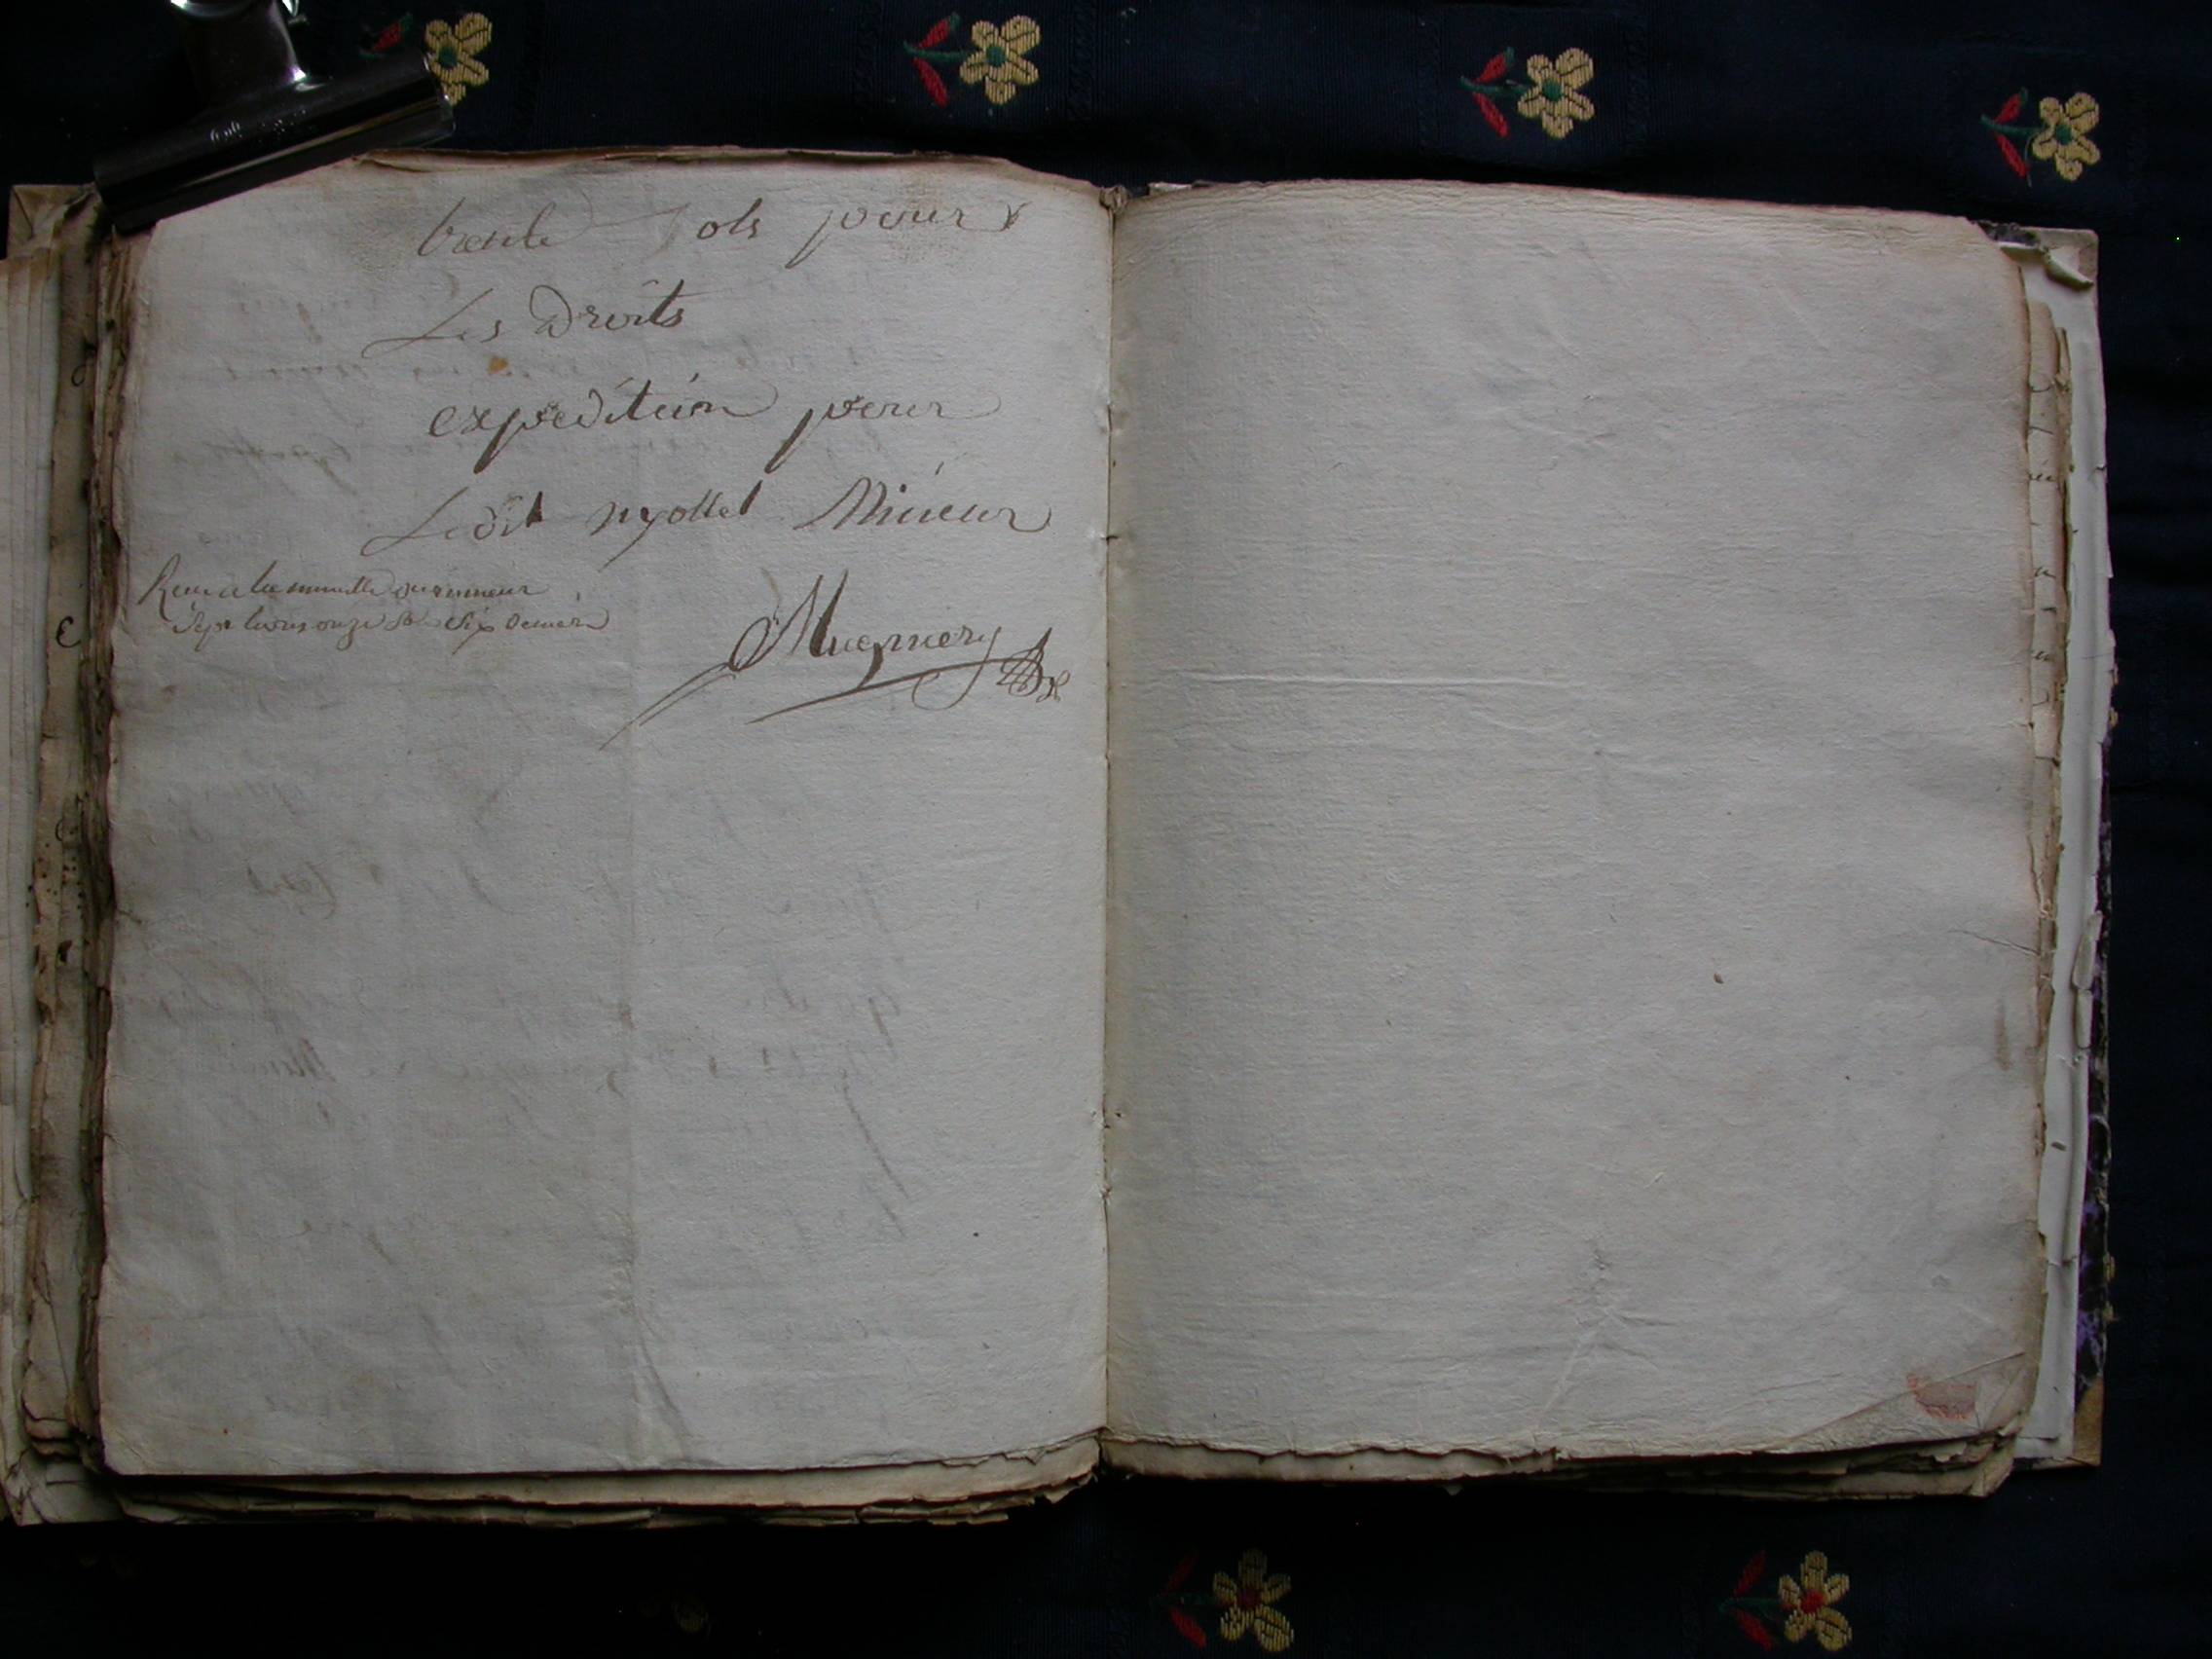 trente sols pour
Les Droits
expedition pour
Ledit myollet Mineur
Reçu a la minutte du mineur
Sept livres onze sols six deniers
Mugniery